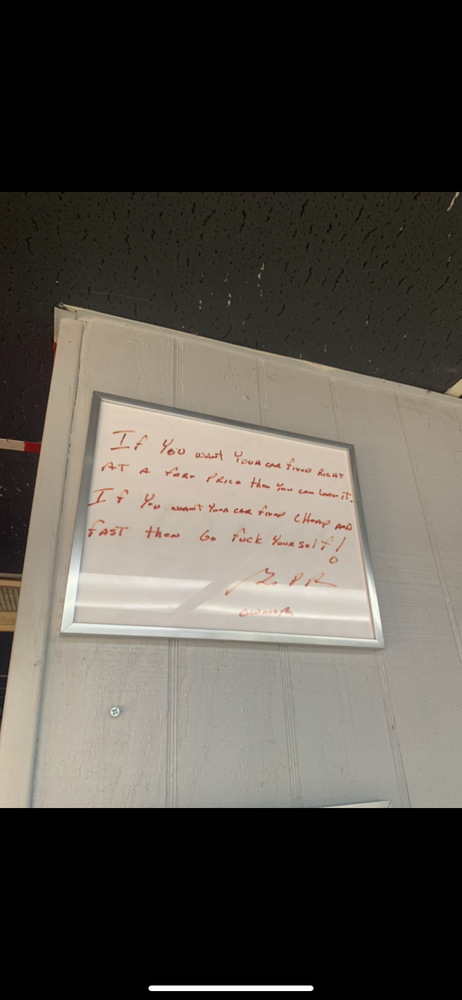 If You want Your car fixed Right
AT A fare Price then You can leave it.
If You want Your car fixed CHeap AND
fAST then Go fuck Yourself!
owner